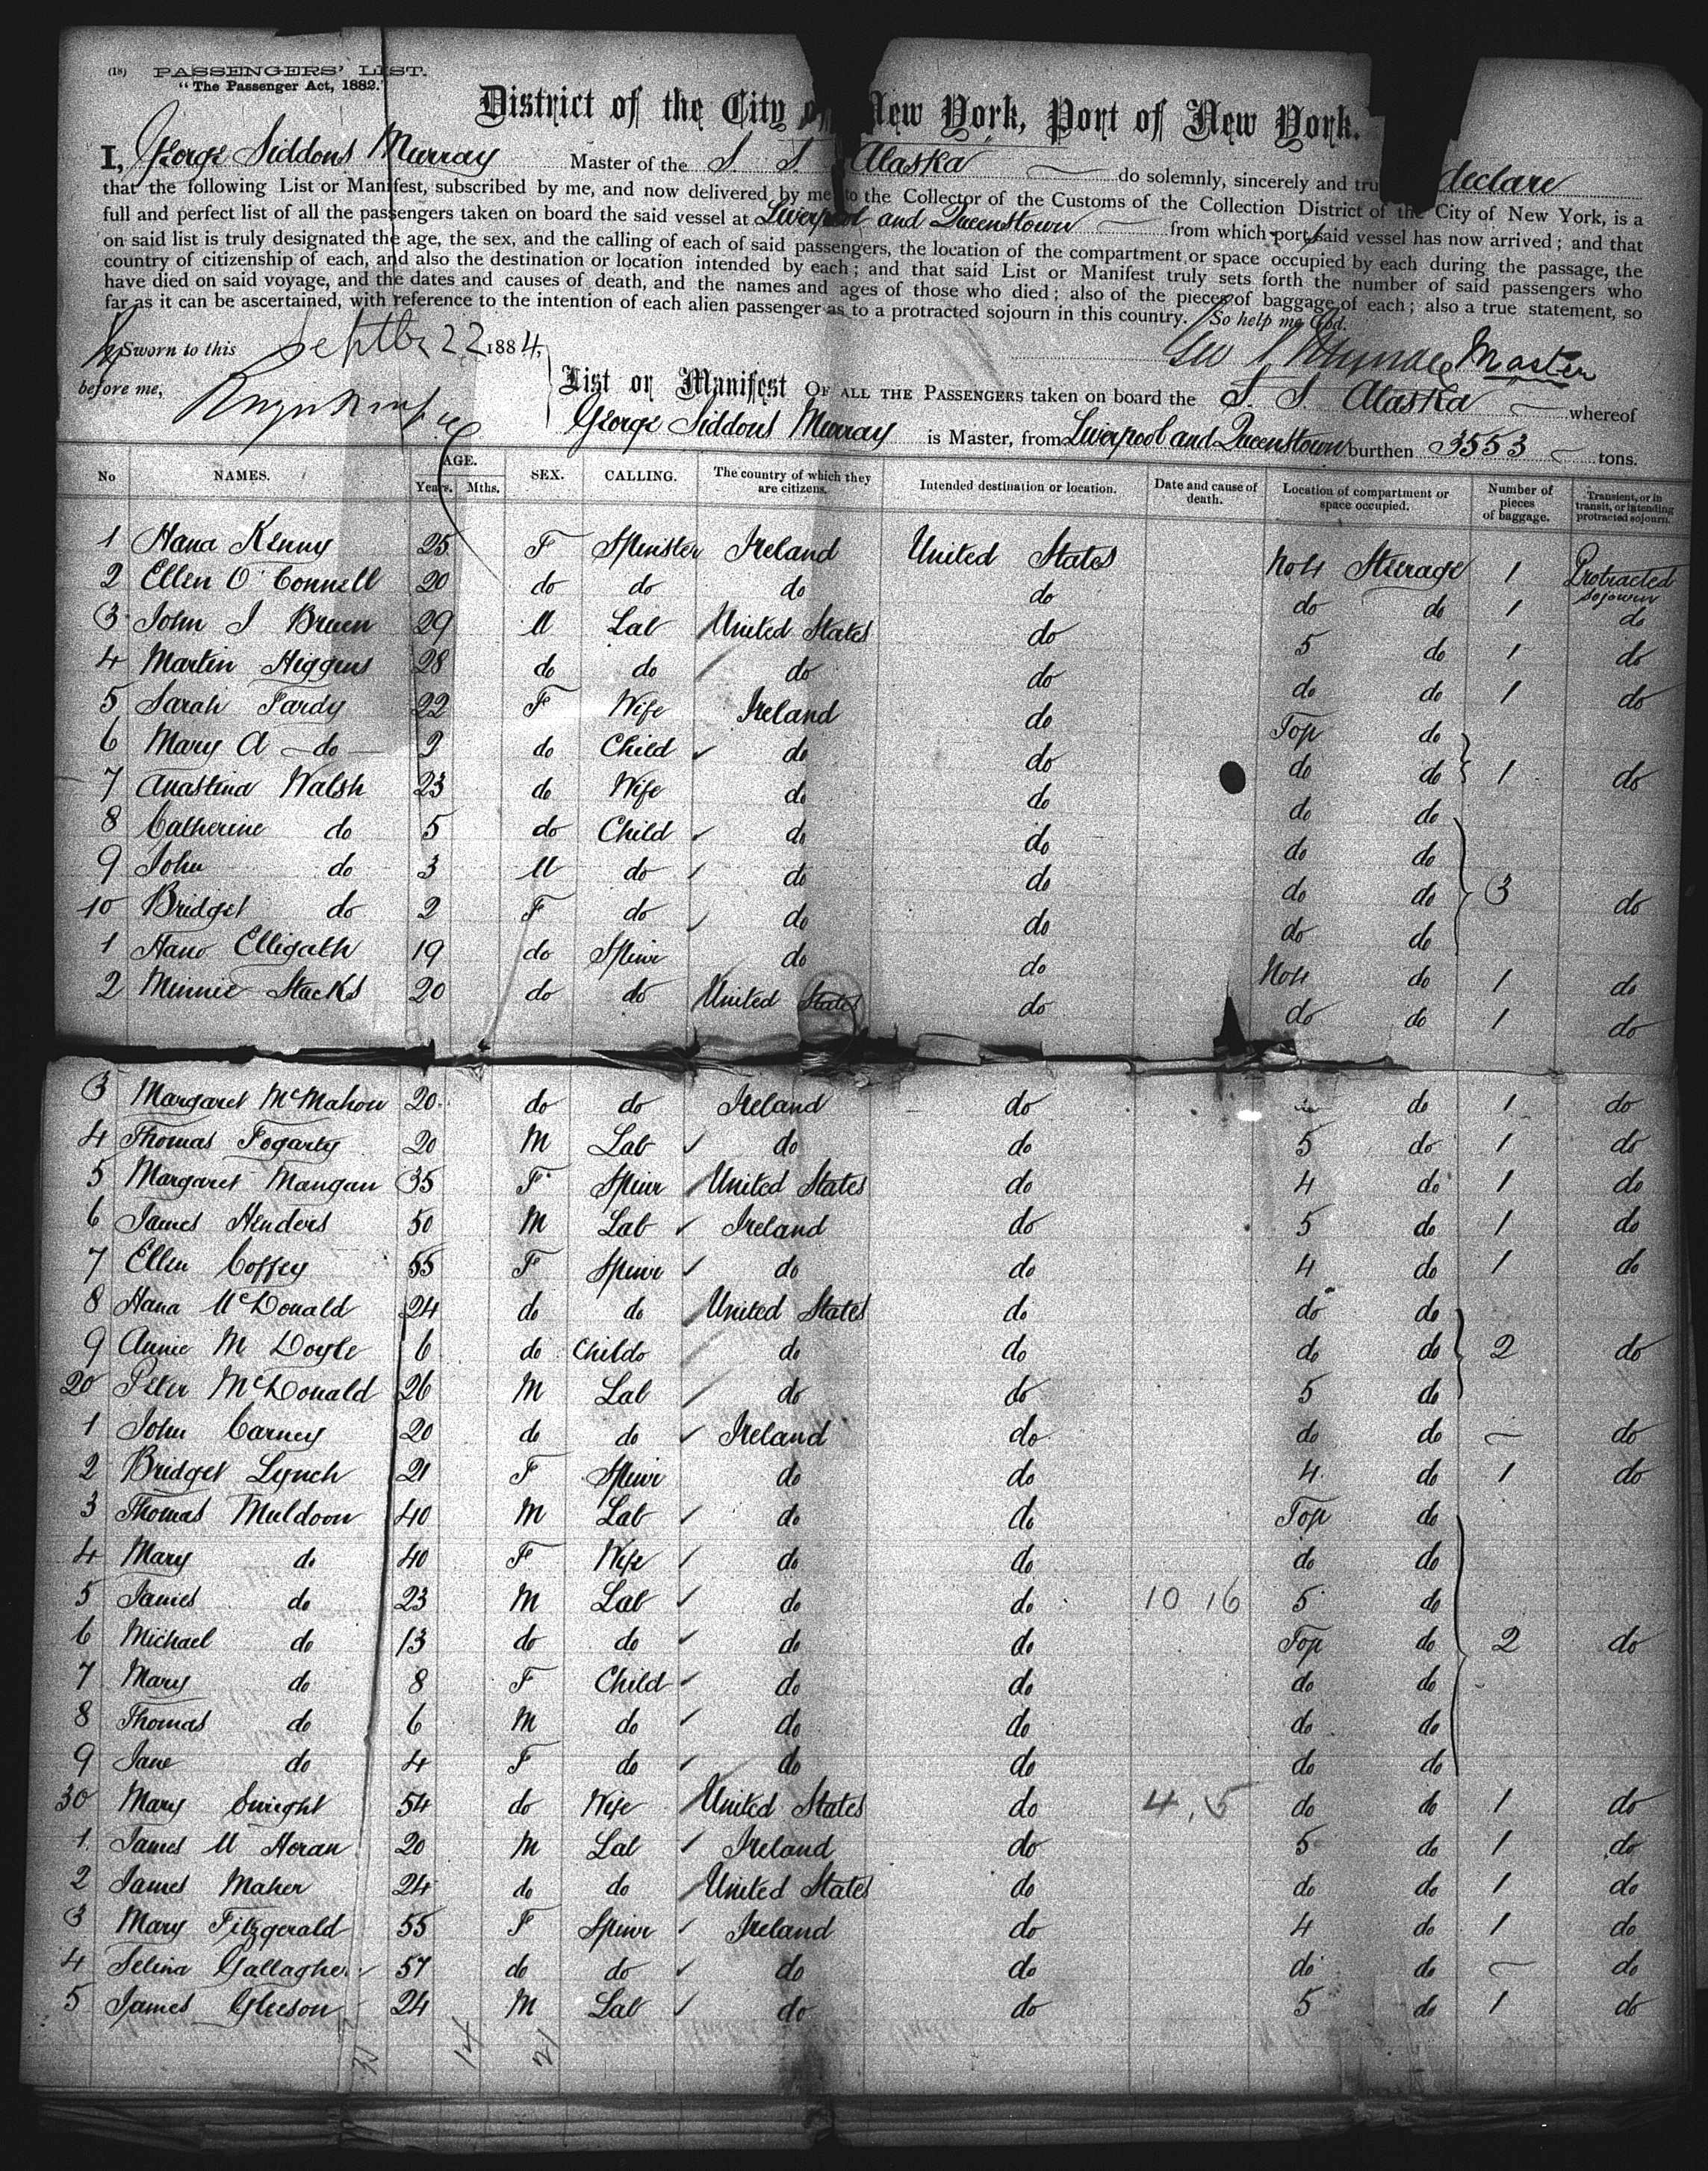 (18) PASSENGERS' LIST.
"The Passenger Act, 1882."
District of the City of New York, Port of New York.
I, George Siddons Murray Master of the S. S. Alaska do solemnly, sincerely and tru declare
that the following List or Manifest, subscribed by me, and now delivered by me to the Collector of the Customs of the Collection District of the City of New York, is a
full and perfect list of all the passengers taken on board the said vessel at Liverpool and Queenstown from which port said vessel has now arrived; and that
on said list is truly designated the age, the sex, and the calling of each of said passengers, the location of the compartment or space occupied by each during the passage, the
country of citizenship of each, and also the destination or location intended by each; and that said List or Manifest truly sets forth the number of said passengers who
have died on said voyage, and the dates and causes of death, and the names and ages of those who died; also of the pieces of baggage of each; also a true statement, so
far as it can be ascertained, with reference to the intention of each alien passenger as to a protracted sojourn in this country. So help me God.
Sworn to this Septbr 22 1884, Master
before me,
List or Manifest OF ALL THE PASSENGERS taken on board the S. S. Alaska whereof
George Siddons Murray is Master, from Liverpool and Queenstown burthen 3553 tons.
No NAMES. AGE. Years. Mths. SEX. CALLING. The country of which they are citizens. Intended destination or location. Date and cause of death. Location of compartment or space occupied. Number of pieces of baggage. Transient, or in transit, or intending protracted sojourn.
1 Hana Kenny 25 F Spinster Ireland United States No 4 Steerage 1 Protracted sojourn
2 Ellen O'Connell 20 do do do do do do 1 do
3 John J Bruen 29 M Lab United States do 5 do 1 do
4 Martin Higgins 28 do do do do do do 1 do
5 Sarah Fardy 22 F Wife Ireland do Top do
6 Mary A do 2 do Child do do do do 1 do
7 Anastina Walsh 23 do Wife do do do do
8 Catherine do 5 do Child do do do do
9 John do 3 M do do do do do 3 do
10 Bridget do 2 F do do do do do
1 Hano Elligath 19 do Spinr do do No 4 do 1 do
2 Minnie Stacks 20 do do United States do do do 1 do
3 Margaret McMahon 20 do do Ireland do do 1 do
4 Thomas Fogarty 20 M Lab do do 5 do 1 do
5 Margaret Mangan 35 F Spinr United States do 4 do 1 do
6 James Henders 50 M Lab Ireland do 5 do 1 do
7 Ellen Coffey 55 F Spinr do do 4 do 1 do
8 Hana McDonald 24 do do United States do do do
9 Annie M Doyle 6 do Childo do do do do 2 do
20 Peter McDonald 26 M Lab do do 5 do
1 John Carney 20 do do Ireland do do do — do
2 Bridget Lynch 21 F Spinr do do 4 do 1 do
3 Thomas Muldoon 40 M Lab do do Top do
4 Mary do 40 F Wife do do do do
5 James do 23 M Lab do do 10 16 5 do
6 Michael do 13 do do do do Top do 2 do
7 Mary do 8 F Child do do do do
8 Thomas do 6 M do do do do do
9 Jane do 4 F do do do do do
30 Mary Enright 54 do Wife United States do 4, 5 do do 1 do
1. James M Horan 20 M Lab Ireland do 5 do 1 do
2 James Maher 24 do do United States do do do 1 do
3 Mary Fitzgerald 55 F Spinr Ireland do 4 do 1 do
4 Selina Gallagher 57 do do do do do do — do
5 James Gleeson 24 M Lab do do 5 do 1 do
14 21